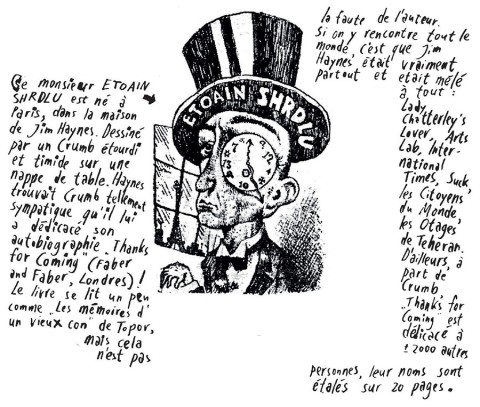 Ce monsieur ETOAIN
SHRDLU est né à
Paris, dans la maison
de Jim Haynes. Dessiné
par un Crumb étourdi
et timide sur une
nappe de table. Haynes
trouvait Crumb tellement
sympatique qu'il lui
a dédicacé son
autobiographie „Thanks
for Coming" (Faber
and Faber, Londres)!
Le livre se lit un peu
comme „Les mémoires d'
un vieux con" de Topor,
mais cela
n'est pas
ETOAIN SHRDLU
la faute de l'auteur.
Si on y rencontre tout le
monde, c'est que Jim
Haynes était vraiment
partout et etait mêlé
à tout:
Lady
Chatterley's
Lover, Arts
Lab, Inter-
national
Times, Suck,
les Citoyens
du Monde,
les Otages
de Teheran.
D'ailleurs, à
part de
Crumb
„Thanks for
Coming" est
dédicacé à
± 2000 autres
personnes, leur noms sont
étalés sur 20 pages.